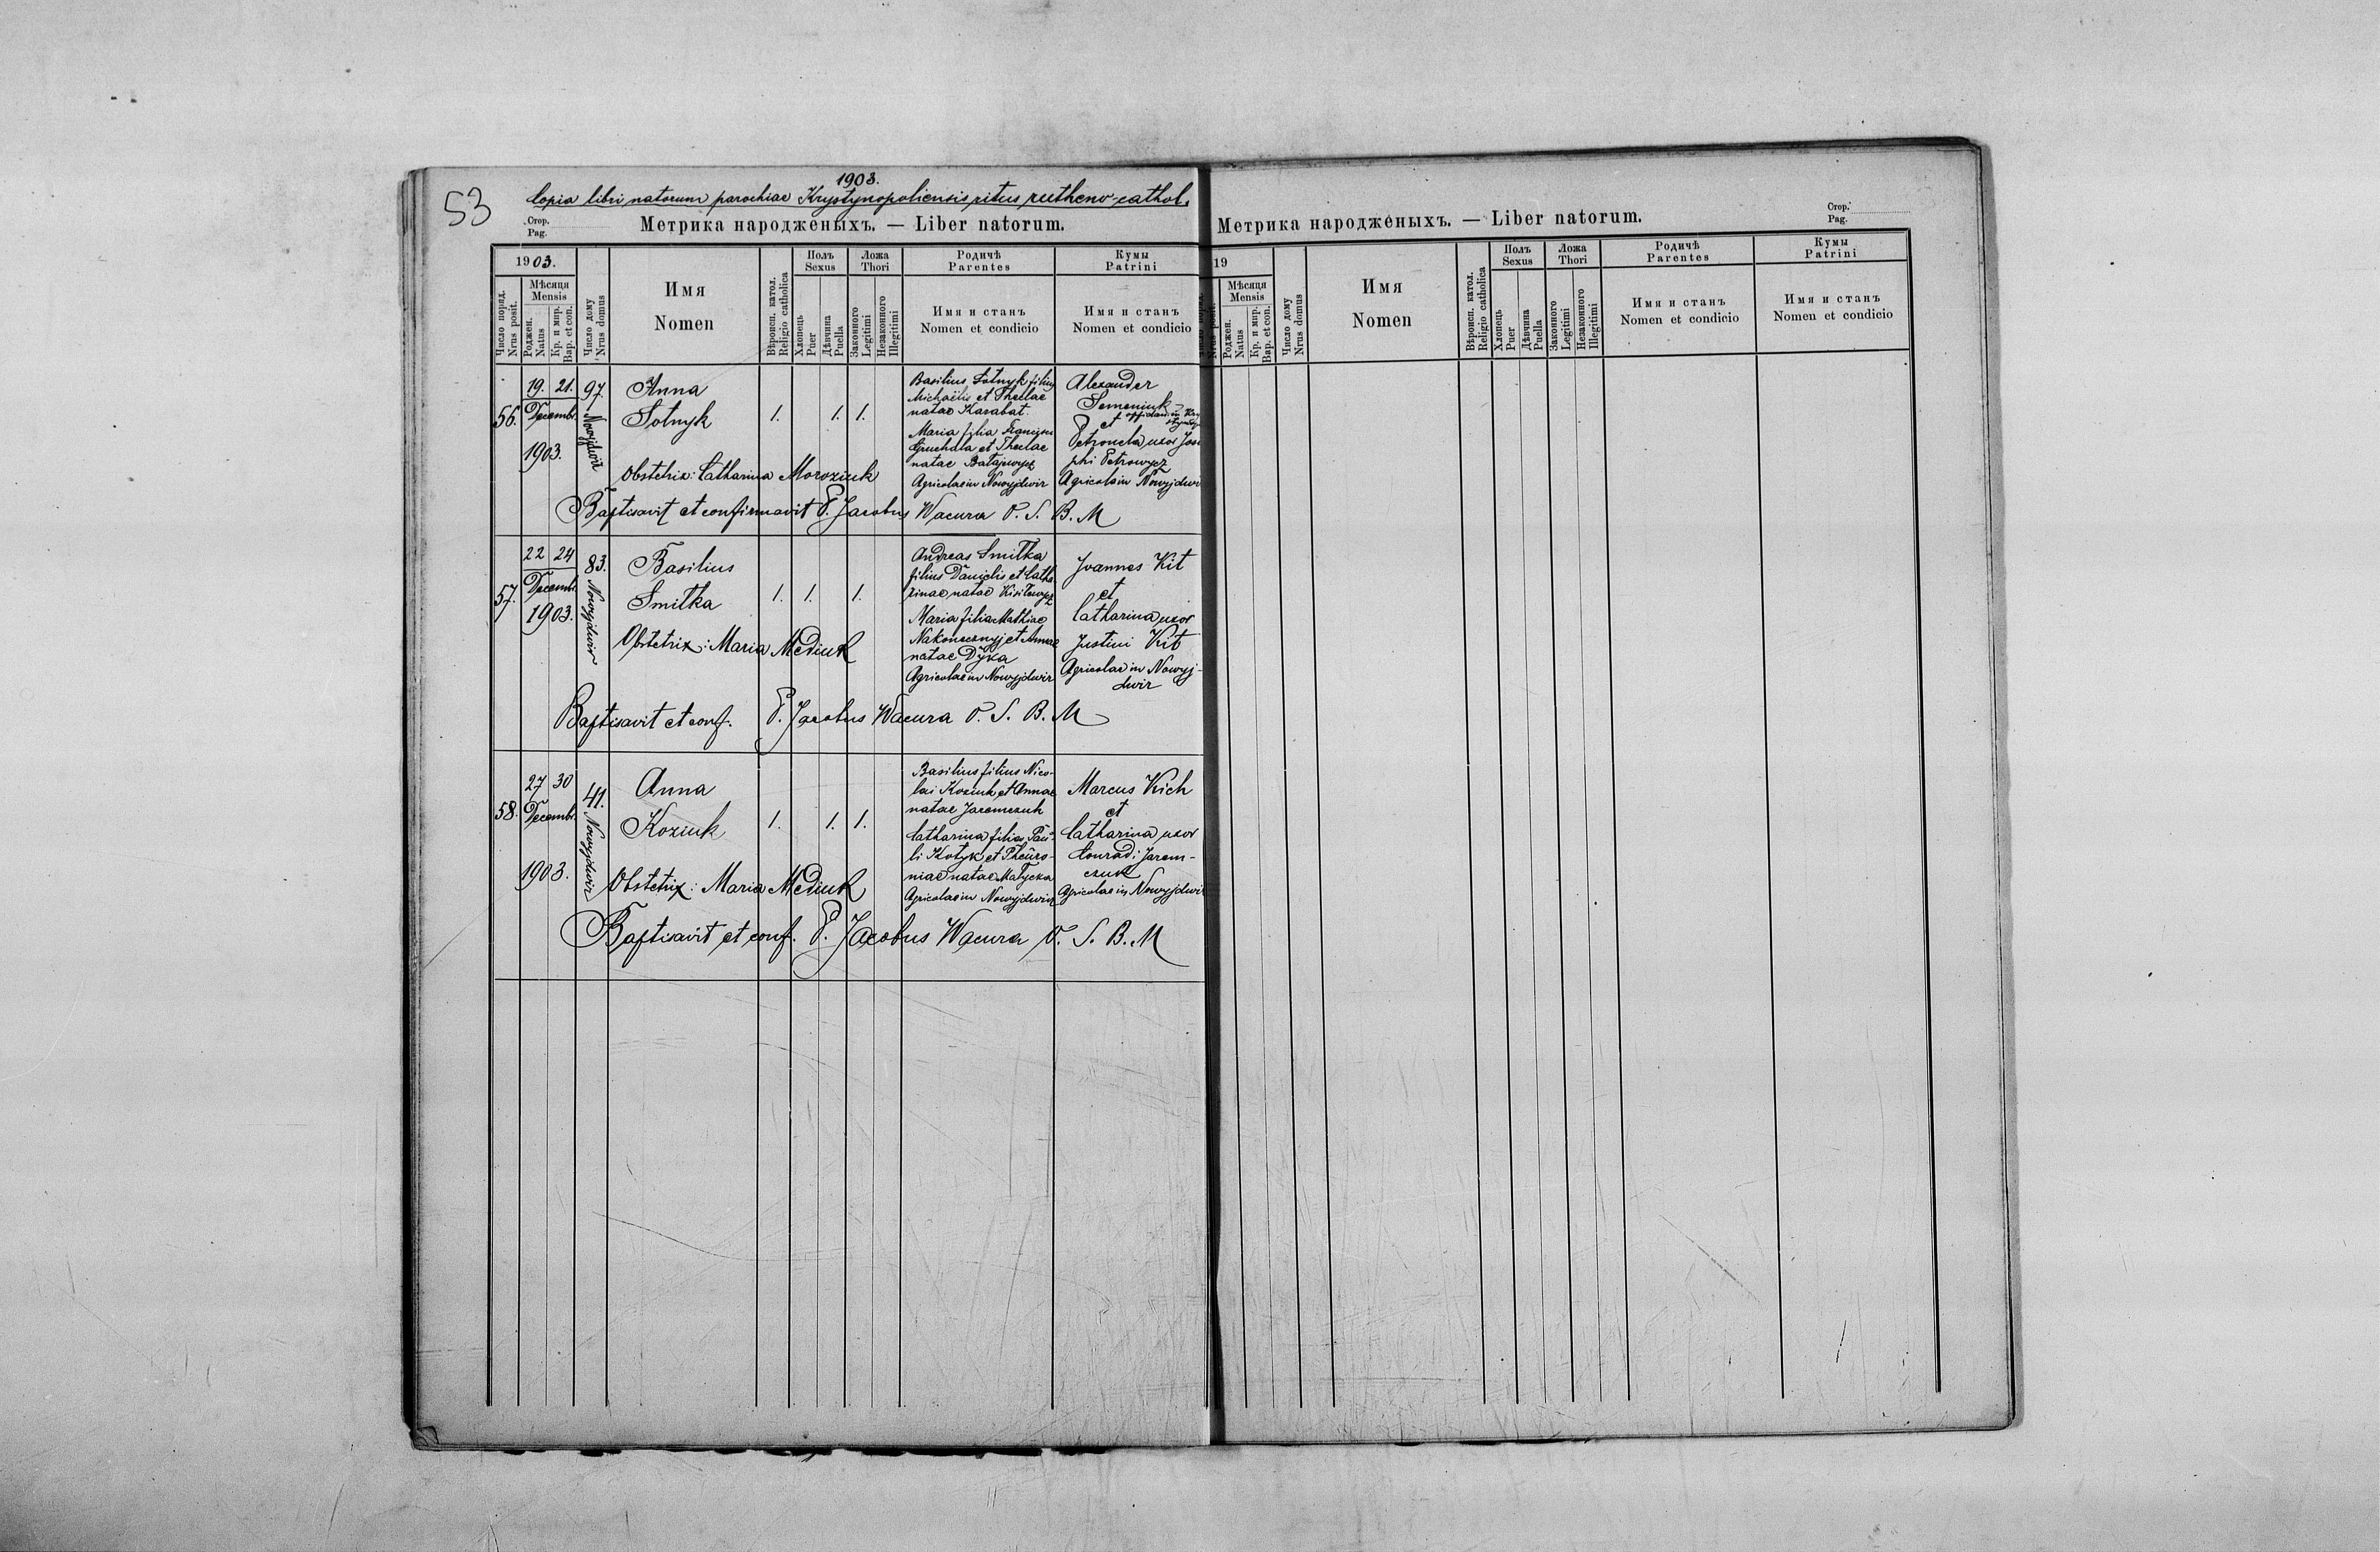 53
1903.
Copia libri natorum parochiae Krystynopoliensis ritus rutheno-cathol.
Стор.
Pag.
Метрика народженыхъ. — Liber natorum.
1903.
Число поряд.
Nrus posit.
Мѣсяця
Mensis
Роджен.
Natus
Кр. и мир.
Bap. et con.
Число дому
Nrus domus
Имя
Nomen
Вѣроисп. катол.
Religio catholica
Полъ
Sexus
Хлопець
Puer
Дѣвчина
Puella
Ложа
Thori
Законного
Legitimi
Незаконного
Illegitimi
Родичѣ
Parentes
Имя и станъ
Nomen et condicio
Кумы
Patrini
Имя и станъ
Nomen et condicio
56.
19. 21.
Decemb.
1903.
97.
Nowyjdwir
Anna
Sotnyk
1. 1. 1.
Obstetrix: Catharina Moroziuk
Basilius Sotnyk filius
Michaëlis et Theclae
natae Karabat.
Maria filia Francisci
et Theclae
natae
Agricolae in Nowyjdwir
Alexander
Semeniuk
et
Petronela uxor Jose
phi Petrowycz
Agricolae in Nowyjdwi
Baptisavit et confirmavit P. Jacobus Wacura O. S. B. M
57.
22 24
Decemb.
1903.
83.
Nowyjdwir
Basilius
Smitka
1. 1. 1.
Obstetrix: Maria Mediuk
Andreas Smitka
filius Danielis et Catha
rinae natae
Maria filia Mathiae
Nakonecznyj et Annae
natae Dyka
Agricolae in Nowyjdwir
Joannes Kit
et
Catharina uxor
Justini Kit
Agricolae in Nowyj-
dwir
Baptisavit et conf. P. Jacobus Wacura O. S. B. M
58.
27 30
Decemb.
1903.
41.
Nowyjdwir
Anna
Koziuk
1. 1. 1.
Obstetrix: Maria Mediuk
Basilius filius Nico-
lai Koziuk et Annae
natae Jaremczuk
Catharina filia Pau-
li Kotyk et
niae natae Matycka
Agricolae in Nowyjdwir
Marcus Kich
et
Catharina uxor
Conradi Jarem-
czuk
Agricolae in Nowyjdwir
Baptisavit et conf. P. Jacobus Wacura O. S. B. M
Метрика народженыхъ. — Liber natorum.
Стор.
Pag.
19
Мѣсяця
Mensis
Роджен.
Natus
Кр. и мир.
Bap. et con.
Число дому
Nrus domus
Имя
Nomen
Вѣроисп. катол.
Religio catholica
Полъ
Sexus
Хлопець
Puer
Дѣвчина
Puella
Ложа
Thori
Законного
Legitimi
Незаконного
Illegitimi
Родичѣ
Parentes
Имя и станъ
Nomen et condicio
Кумы
Patrini
Имя и станъ
Nomen et condicio